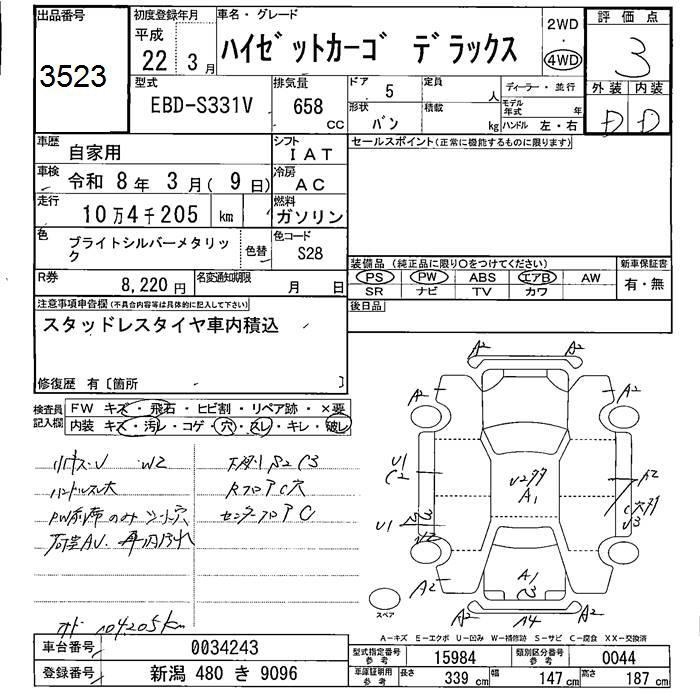 出品番号
3523
初度登録年月
平成
22年 3月
車名・グレード
ハイゼットカーゴ デラックス
2WD
・
4WD
評価点
3
外装 内装
D D
型式
EBD-S331V
排気量
658
CC
ドア 5
形状 バン
定員 人
積載 kg
ディーラー・並行
モデル年式 年
ハンドル 左・右
車歴
自家用
シフト
IAT
セールスポイント(正常に機能するものに限ります)
車検
令和 8年 3月(9日)
冷房
AC
走行
10万4千205 km
燃料
ガソリン
色
ブライトシルバーメタリック
色替
色コード
S28
R券
8,220円
名変通知期限
月 日
装備品(純正品に限り○をつけてください)
PS PW ABS エアB AW
SR ナビ TV カワ
新車保証書
有・無
後日品
注意事項申告欄(不具合内容等は具体的に記入して下さい)
スタッドレスタイヤ車内積込
修復歴 有〔箇所 〕
検査員記入欄
FW キズ・飛石・ヒビ割・リペア跡・×要
内装 キズ・汚レ・コゲ・穴・スレ・キレ・破レ
W2
下廻りS2 C3
ハンドルスレ大
RフロアC穴
PW前席のみ シート穴
センターフロアC
荷室AU.
オド 104205km
A2 A2
A2 A2
U1
C2
A1
A2
U1
U3
A1
C3
A2 A2
A2 A4 A2
スペア
A-キズ E-エクボ U-凹み W-補修跡 S-サビ C-腐食 XX-交換済
車台番号
0034243
登録番号
新潟 480 き 9096
型式指定番号 参考
15984
類別区分番号 参考
0044
車庫証明用 参考
長さ 339 cm 幅 147 cm 高さ 187 cm